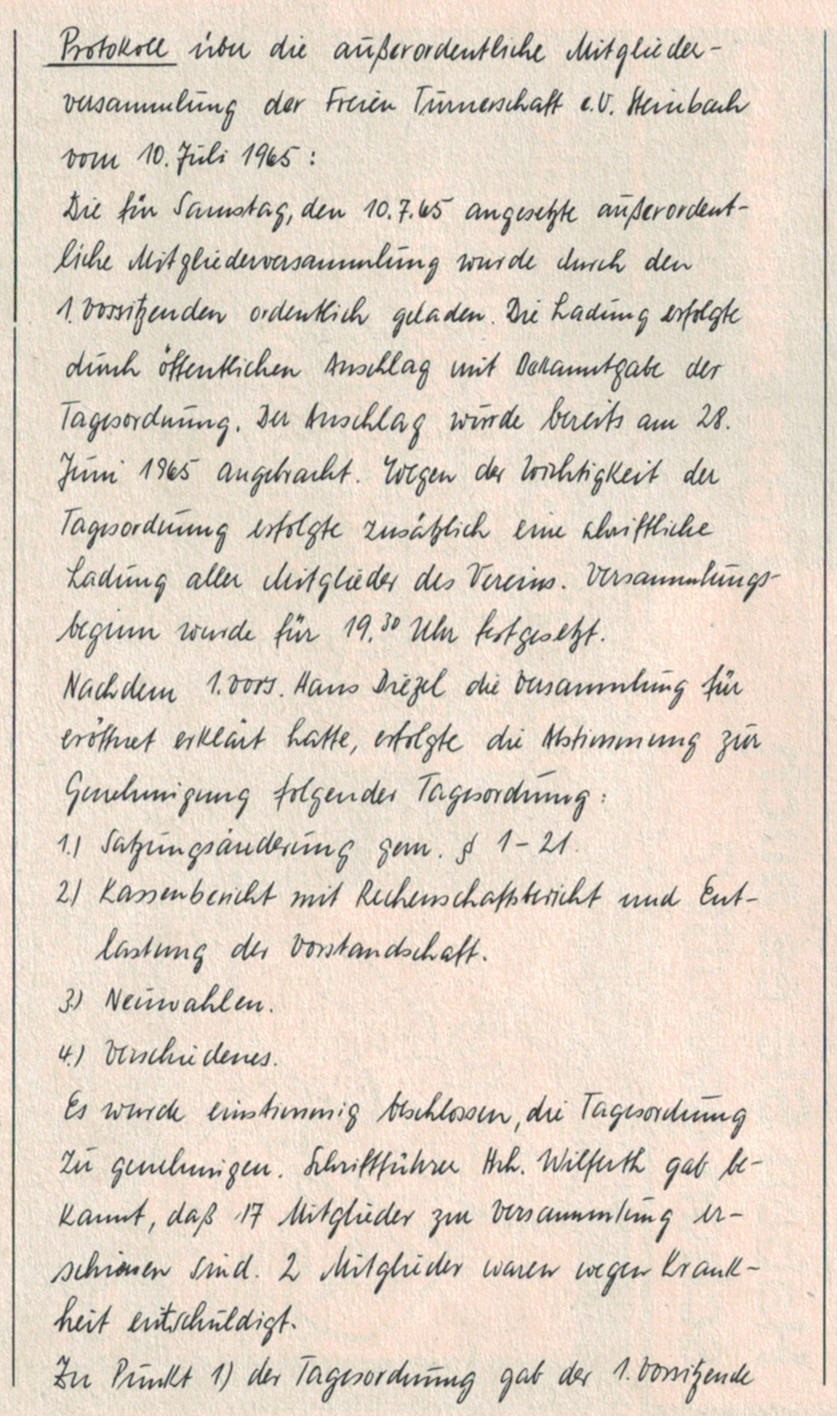 Protokoll über die außerordentliche Mitglieder-
versammlung der Freien Turnerschaft e.V. Steinbach
vom 10. Juli 1965:
Die für Samstag, den 10.7.65 angesetzte außerordent-
liche Mitgliederversammlung wurde durch den
1. Vorsitzenden ordentlich geladen. Die Ladung erfolgte
durch öffentlichen Anschlag mit Bekanntgabe der
Tagesordnung. Der Anschlag wurde bereits am 28.
Juni 1965 angebracht. Wegen der Wichtigkeit der
Tagesordnung erfolgte zusätzlich eine schriftliche
Ladung aller Mitglieder des Vereins. Versammlungs-
beginn wurde für 19.30 Uhr festgesetzt.
Nachdem 1. Vors. Hans Diezel die Versammlung für
eröffnet erklärt hatte, erfolgte die Abstimmung zur
Genehmigung folgender Tagesordnung:
1.) Satzungsänderung gem. § 1-21.
2) Kassenbericht mit Rechenschaftsbericht und Ent-
lastung der Vorstandschaft.
3.) Neuwahlen.
4.) Verschiedenes.
Es wurde einstimmig beschlossen, die Tagesordnung
zu genehmigen. Schriftführer Hch. Wilferth gab be-
kannt, daß 17 Mitglieder zur Versammlung er-
schienen sind. 2 Mitglieder waren wegen Krank-
heit entschuldigt.
Zu Punkt 1) der Tagesordnung gab der 1. Vorsitzende